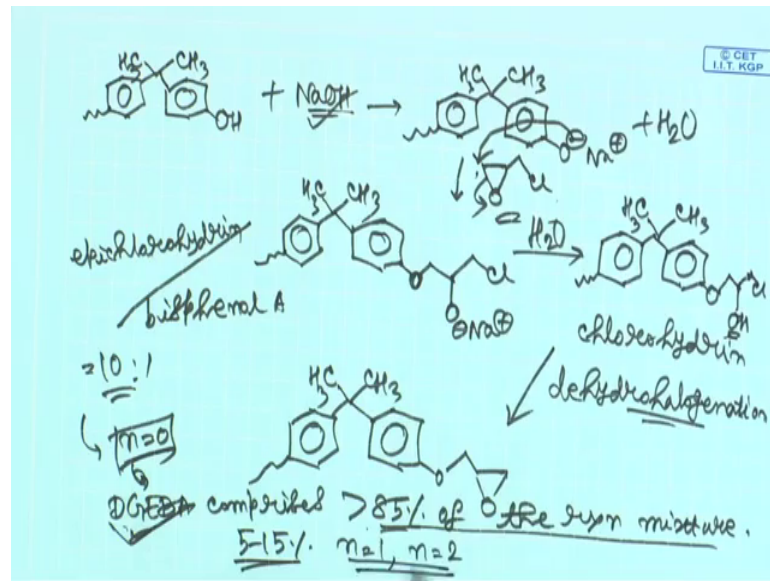 © CET
I.I.T. KGP
H₃C CH₃
OH
+ NaOH →
H₃C CH₃
O⊖ Na⊕ + H₂O
Cl
O
epichlorohydrin
bisphenol A
= 10 : 1
n=0
H₃C CH₃
O
Cl
O⊖Na⊕
H₂O
H₃C CH₃
O
Cl
OH
chlorohydrin
dehydrohalogenation
H₃C CH₃
O
O
DGEBA comprises >85% of the rxn mixture.
5-15% n=1, n=2